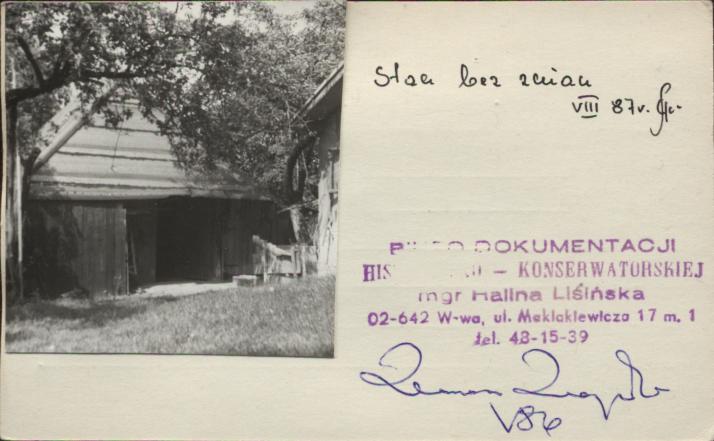 Stan bez zmian
VIII 87r.
BIURO DOKUMENTACJI
– KONSERWATORSKIEJ
mgr Halina Lisińska
02-642 W-wa, ul. Maklakiewicza 17 m. 1
tel. 43-15-39
V86